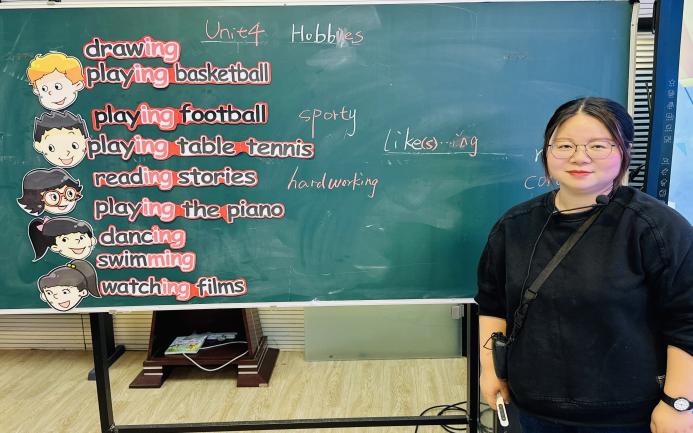 Unit4 Hobbies
drawing
playing basketball
playing football
sporty
playing table tennis
like(s)...ing
reading stories
hardworking
playing the piano
dancing
swimming
watching films